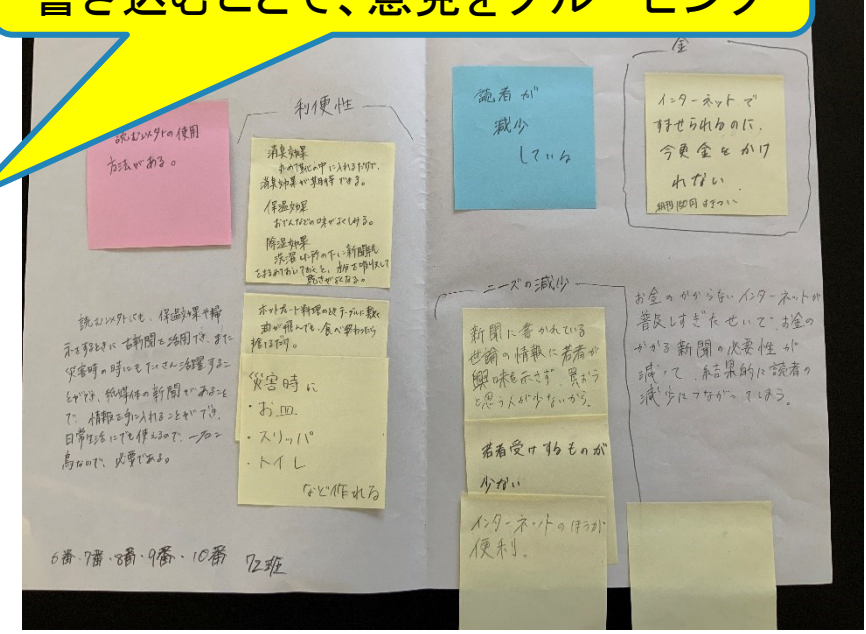 書き込むことで、意見をグルーピング
読む以外の使用
方法がある。
利便性
消臭効果
丸めて靴の中に入れるだけで、
消臭効果が期待できる。
保温効果
おでんなどの味がよくしみる。
除湿効果
洗濯
ホットプレート料理の時テーブルに敷く
油が飛んでも、食べ終わったら
捨てるだけ。
災害時に
・お皿
・スリッパ
・トイレ
など作れる
読む以外にも、保温効果や掃
除をするときに古新聞を活用でき、また
災害時の時にもたくさん活躍するこ
とができ、紙媒体の新聞があること
で、情報を手に入れることができ、
日常生活にでも使えるので、一石二
鳥なので、必要である。
6番・7番・8番・9番・10番
読者が
減少
している
金
インターネットで
すませられるのに、
今更金をかけ
れない
ニーズの減少
新聞に書かれている
世論の情報に若者が
興味を示さず、買おう
と思う人が少ないから。
若者受けするものが
少ない
インターネットのほうが
便利。
お金のかからないインターネットが
普及しすぎたせいで、お金の
かかる新聞の必要性が
減って、結果的に読者の
減少につながってしまう。